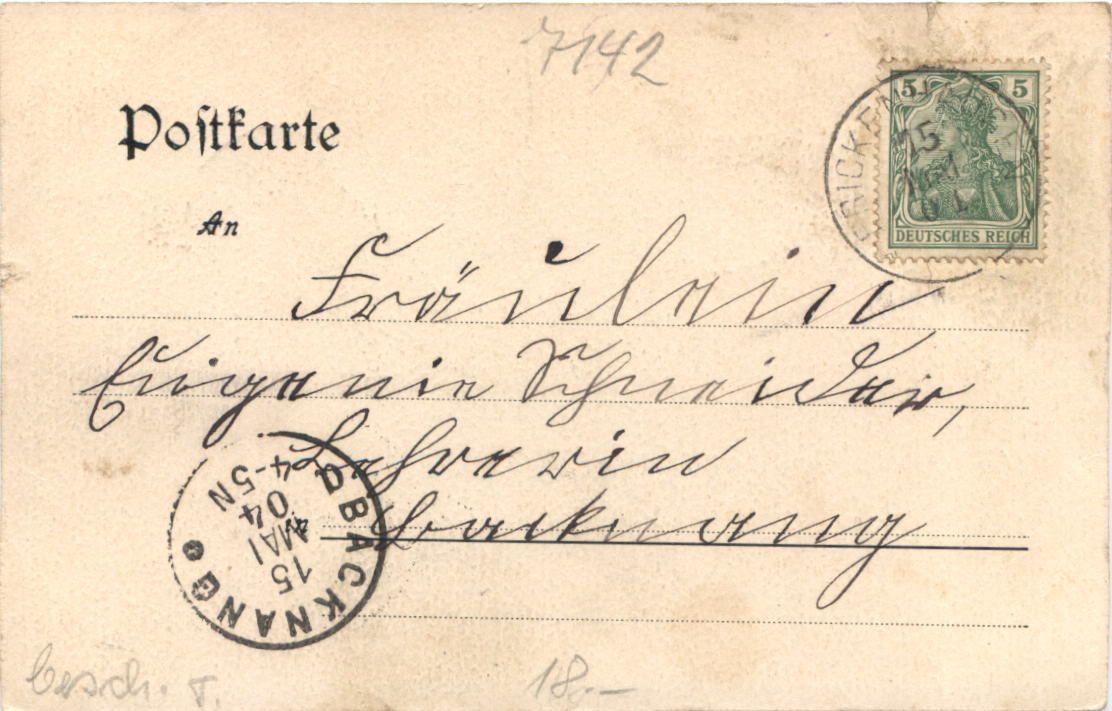 7142
Postkarte
5 5
15
MAI
04
DEUTSCHES REICH
An
Fräulein
Eugenie Schneider,
Lehrerin
Backnang
BACKNANG
15
MAI
04
4-5N
besch.
18.–